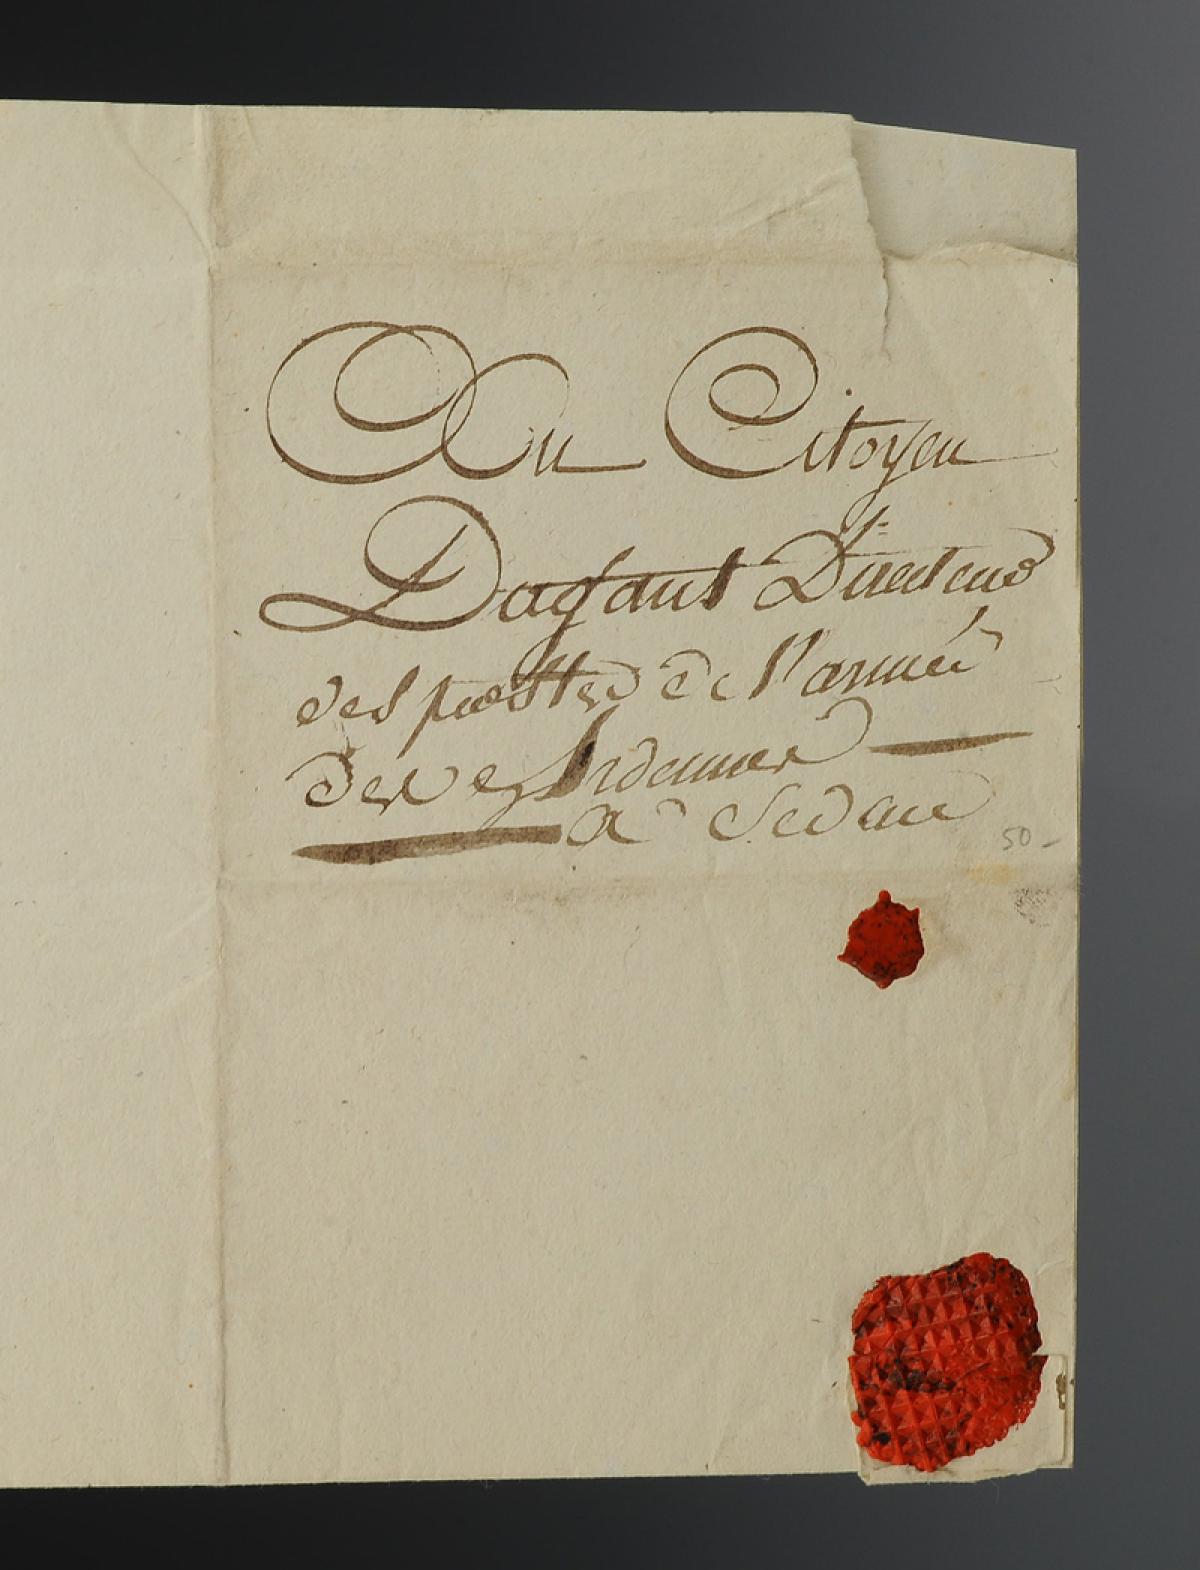 Au Citoyen
Dagfaut Directeur
des postes de l'armée
des Ardennes
a Sedan
50-